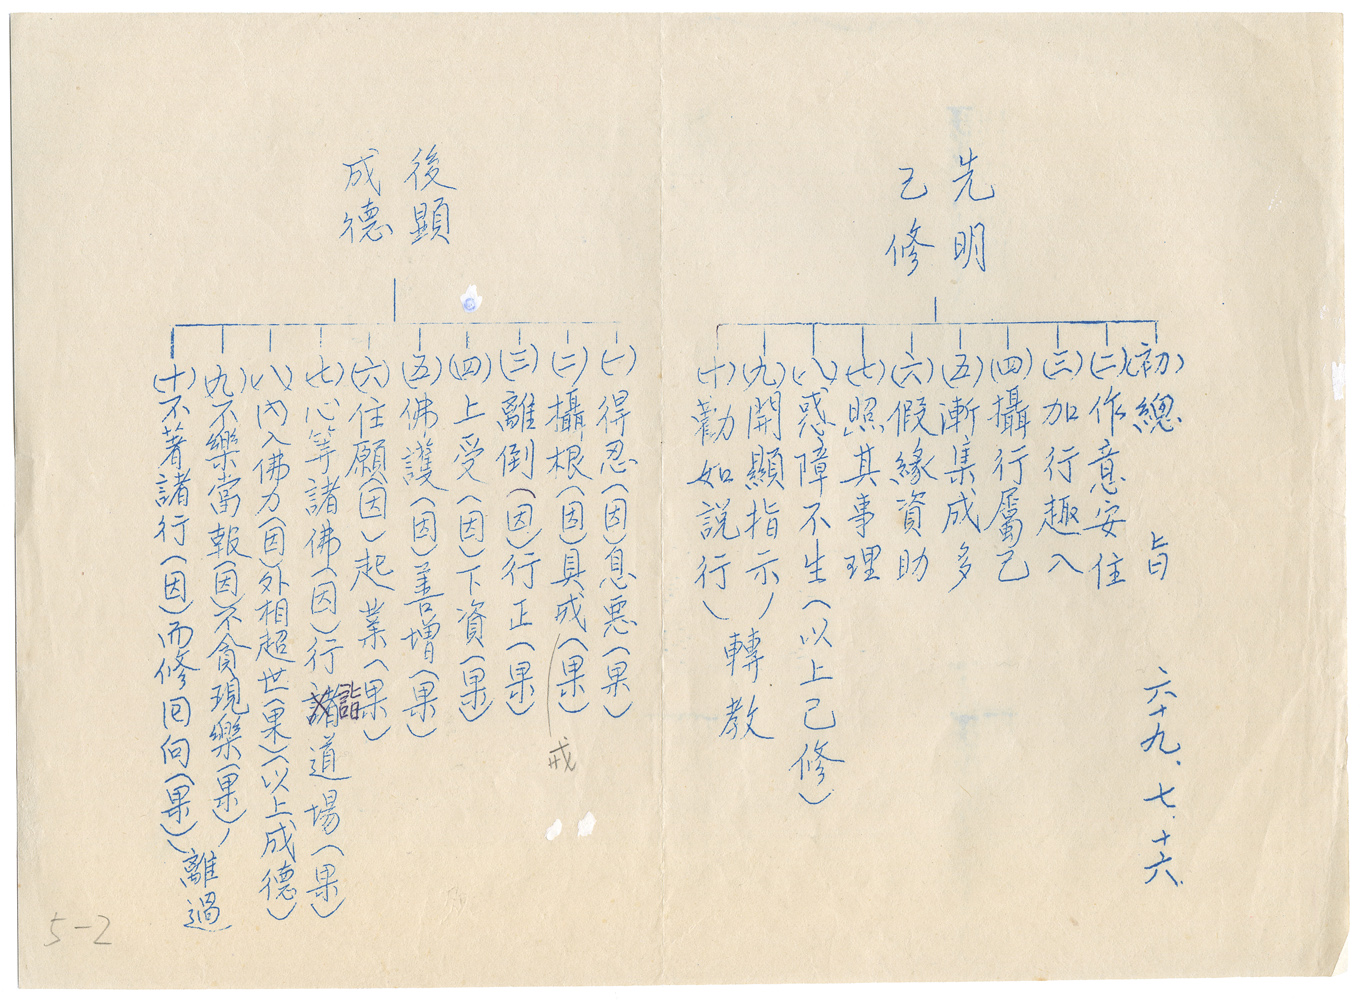 旨　六十九.七.十六.
先明
己修
(初)總
(二)作意安住
(三)加行趣入
(四)攝行屬己
(五)漸集成多
(六)假緣資助
(七)照其事理
(八)惑障不生(以上己修)
(九)開顯指示
(十)勸如說行
轉教
後顯
成德
(一)得忍(因)息惡(果)
(二)攝根(因)具戒(果)
戒
(三)離倒(因)行正(果)
(四)上受(因)下資(果)
(五)佛護(因)善增(果)
(六)住願(因)起業(果)
(七)心等諸佛(因)行諸詣道場(果)
(八)內入佛力(因)外相超世(果)(以上成德)
(九)不樂當報(因)不貪現樂(果)
(十)不著諸行(因)而修回向(果)
離過
5-2